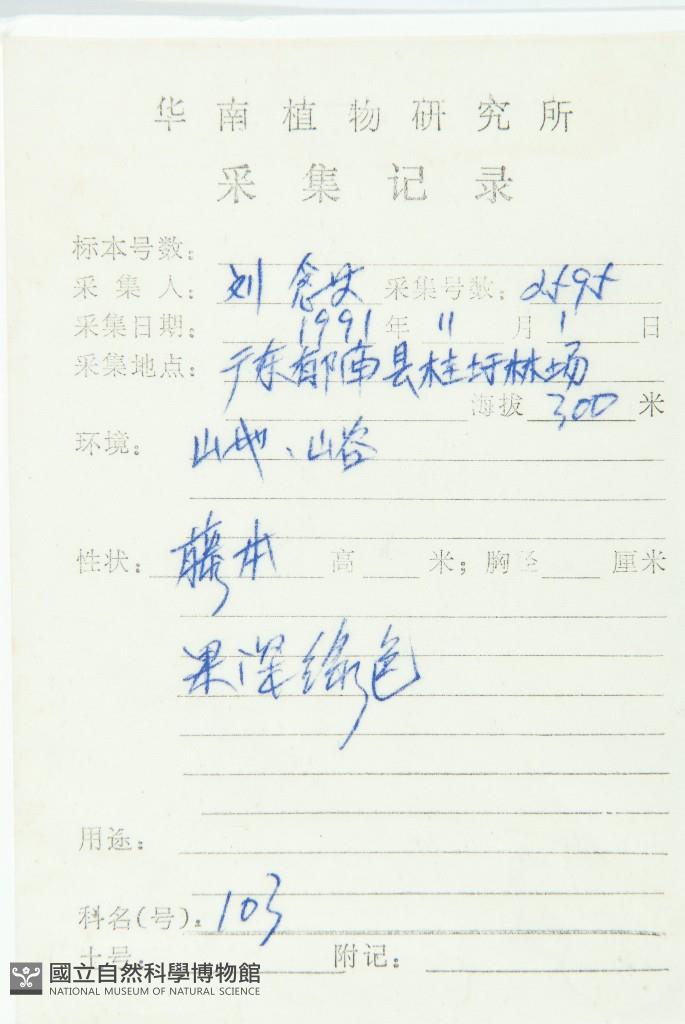 华南植物研究所
采集记录
标本号数：
采集人：刘念 采集号数：2595
采集日期：1991年11月1日
采集地点：广东郁南县桂圩林场
海拔 300 米
环境：山地、山谷
性状：藤本 高 米；胸径 厘米
果深绿色
用途：
科名(号)：103
土号： 附记：
國立自然科學博物館
NATIONAL MUSEUM OF NATURAL SCIENCE